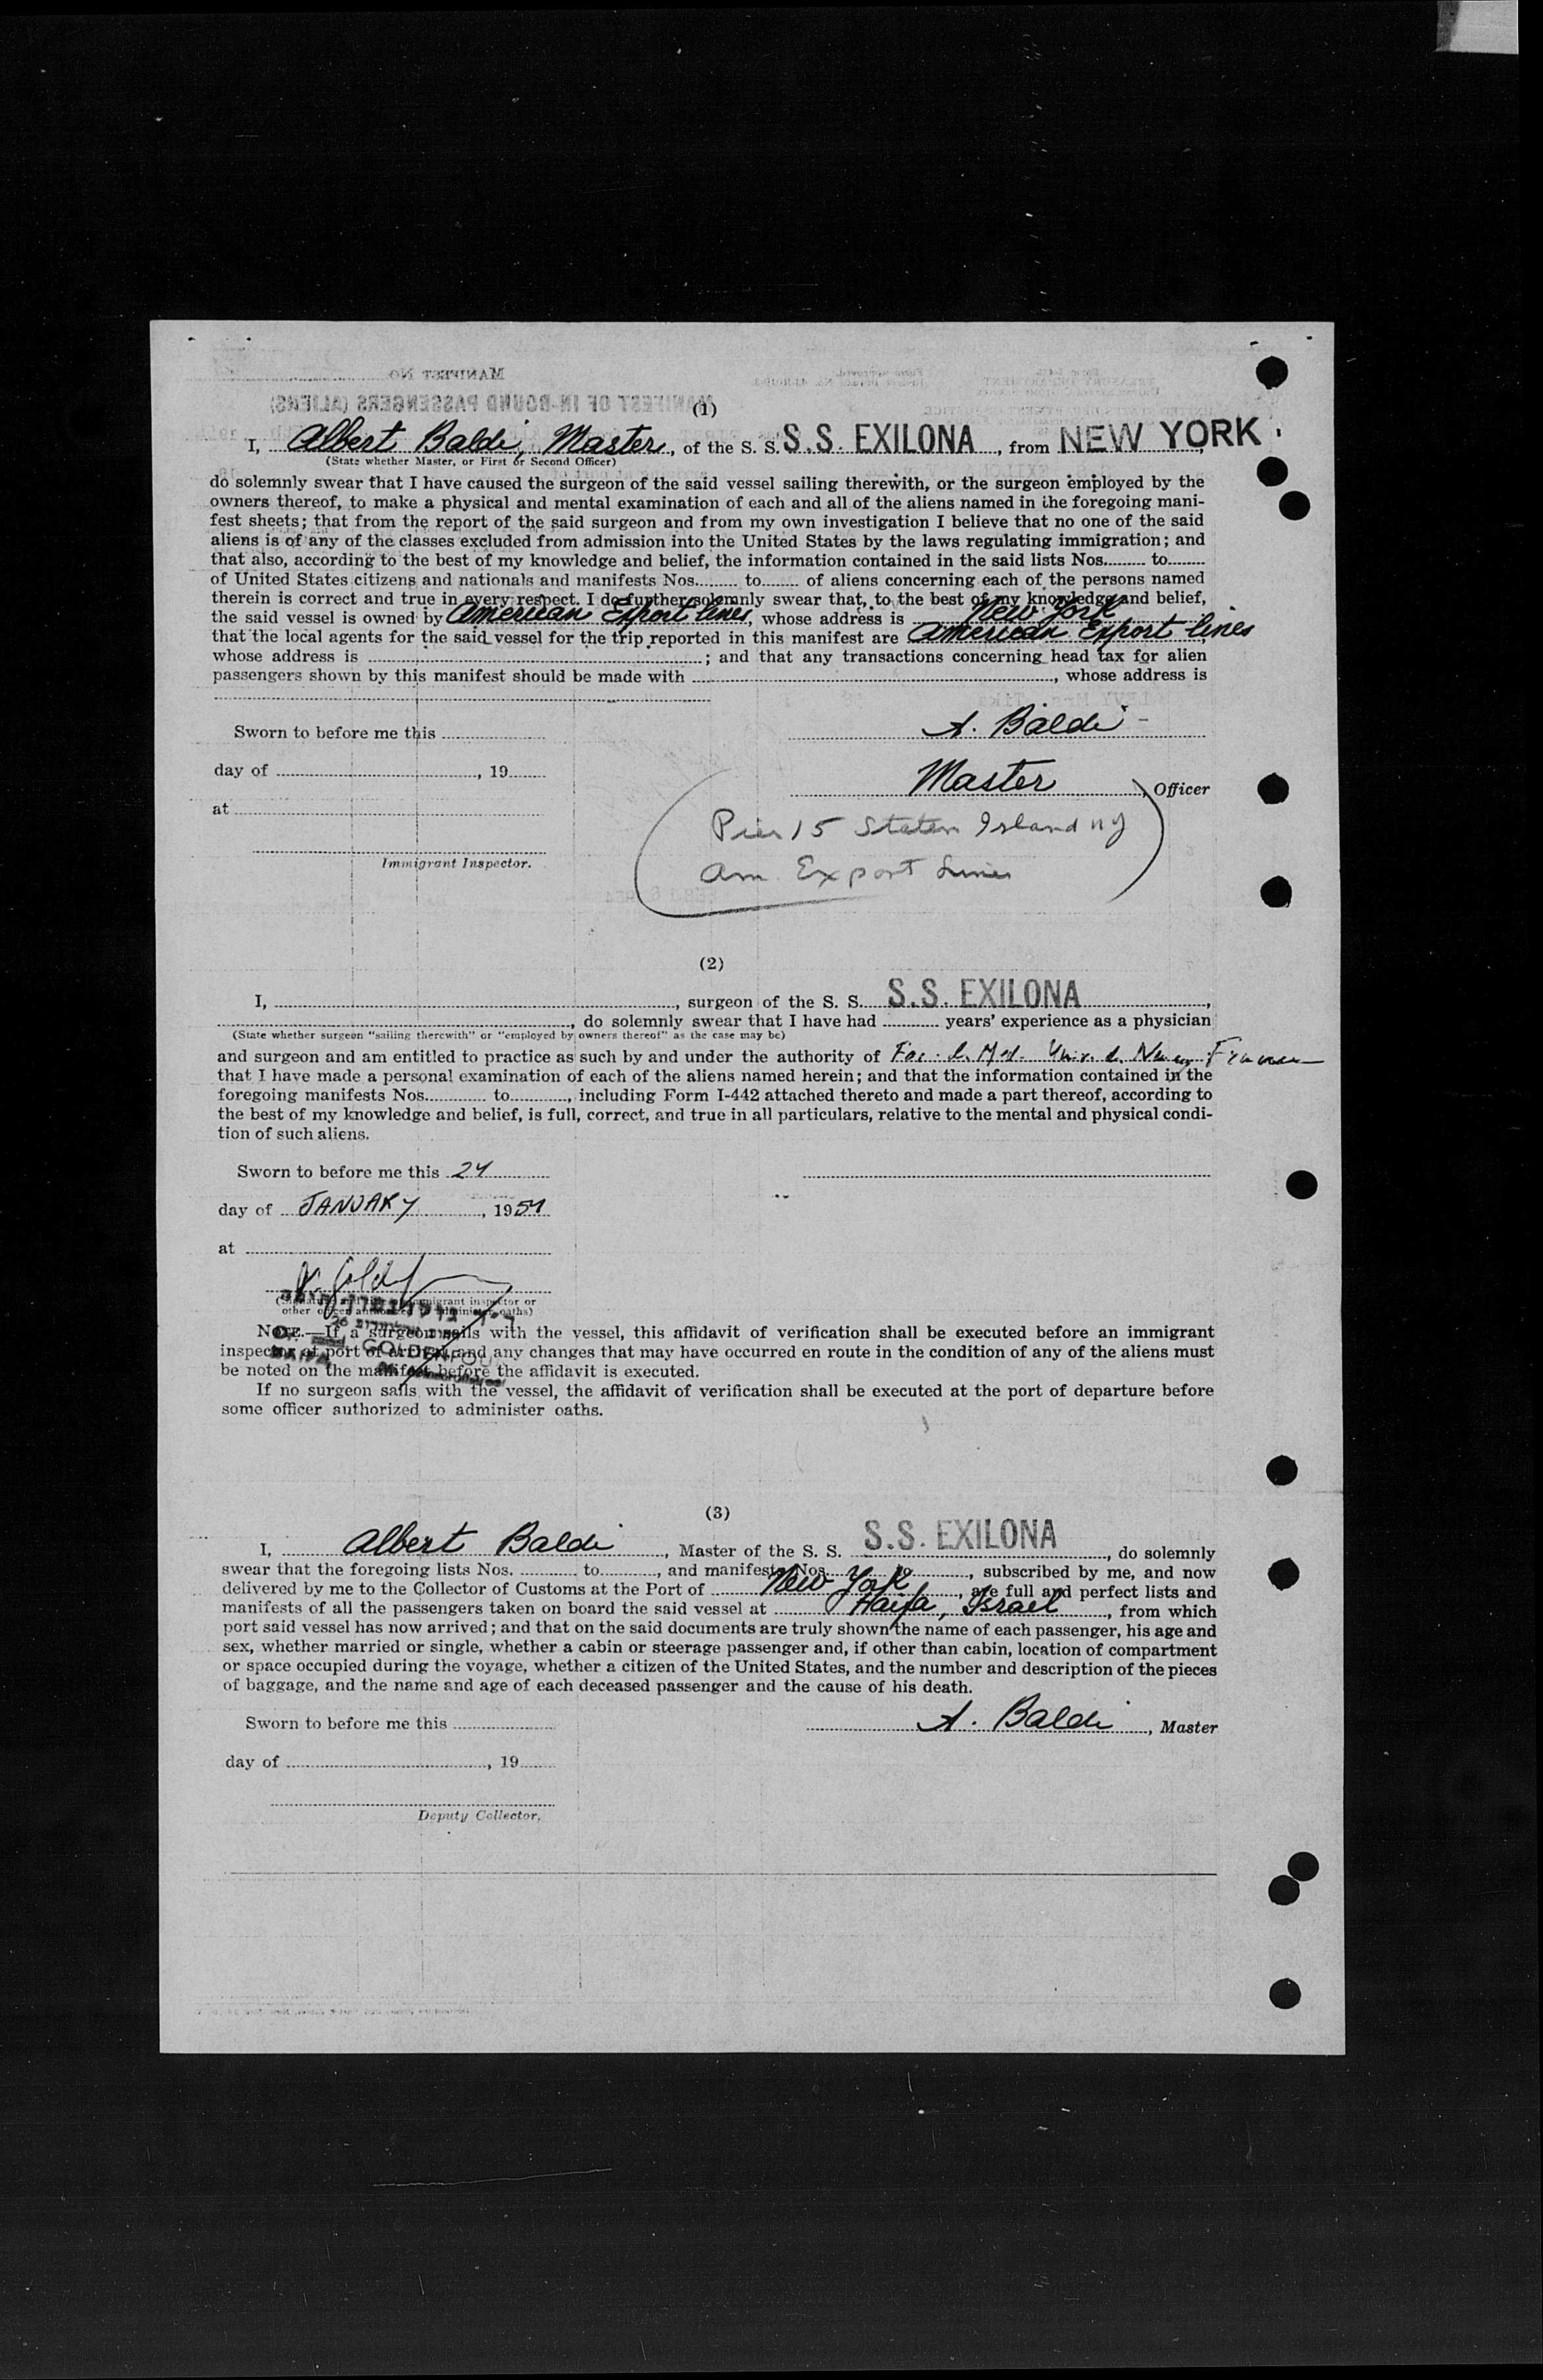 MANIFEST NO.
MANIFEST OF IN-BOUND PASSENGERS (ALIENS)
(1)
I, Albert Baldi, Master, of the S. S. S.S. EXILONA, from NEW YORK,
(State whether Master, or First or Second Officer)
do solemnly swear that I have caused the surgeon of the said vessel sailing therewith, or the surgeon employed by the
owners thereof, to make a physical and mental examination of each and all of the aliens named in the foregoing mani-
fest sheets; that from the report of the said surgeon and from my own investigation I believe that no one of the said
aliens is of any of the classes excluded from admission into the United States by the laws regulating immigration; and
that also, according to the best of my knowledge and belief, the information contained in the said lists Nos. to
of United States citizens and nationals and manifests Nos. to of aliens concerning each of the persons named
therein is correct and true in every respect. I do further solemnly swear that, to the best of my knowledge and belief,
the said vessel is owned by American Export lines, whose address is New York
that the local agents for the said vessel for the trip reported in this manifest are American Export lines
whose address is ; and that any transactions concerning head tax for alien
passengers shown by this manifest should be made with , whose address is
Sworn to before me this
A. Baldi
day of , 19
Master, Officer
at
Pier 15 Staten Island NY
Am. Export Lines
Immigrant Inspector.
(2)
I, , surgeon of the S. S. S.S. EXILONA,
, do solemnly swear that I have had years' experience as a physician
(State whether surgeon "sailing therewith" or "employed by owners thereof" as the case may be)
and surgeon and am entitled to practice as such by and under the authority of Fac. d. Med. Univ. d.
that I have made a personal examination of each of the aliens named herein; and that the information contained in the
foregoing manifests Nos. to , including Form I-442 attached thereto and made a part thereof, according to
the best of my knowledge and belief, is full, correct, and true in all particulars, relative to the mental and physical condi-
tion of such aliens.
Sworn to before me this 24
day of JANUARY, 1951
at
(Signature and title of immigrant inspector or
other officer authorized to administer oaths)
NOTE.—If a surgeon sails with the vessel, this affidavit of verification shall be executed before an immigrant
inspector at port of arrival, and any changes that may have occurred en route in the condition of any of the aliens must
be noted on the manifest before the affidavit is executed.
If no surgeon sails with the vessel, the affidavit of verification shall be executed at the port of departure before
some officer authorized to administer oaths.
(3)
I, Albert Baldi, Master of the S. S. S.S. EXILONA, do solemnly
swear that the foregoing lists Nos. to , and manifests Nos. to , subscribed by me, and now
delivered by me to the Collector of Customs at the Port of New York, are full and perfect lists and
manifests of all the passengers taken on board the said vessel at Haifa, Israel, from which
port said vessel has now arrived; and that on the said documents are truly shown the name of each passenger, his age and
sex, whether married or single, whether a cabin or steerage passenger and, if other than cabin, location of compartment
or space occupied during the voyage, whether a citizen of the United States, and the number and description of the pieces
of baggage, and the name and age of each deceased passenger and the cause of his death.
Sworn to before me this
A. Baldi, Master
day of , 19
Deputy Collector.